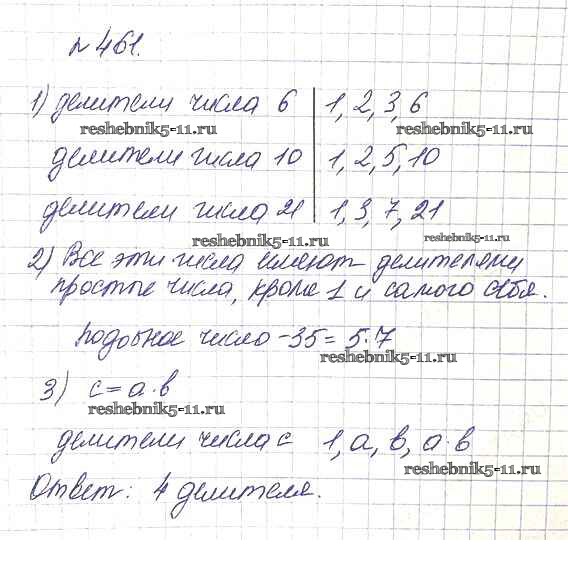 № 461.
1) делители числа 6 | 1, 2, 3, 6
reshebnik5-11.ru reshebnik5-11.ru
делители числа 10 | 1, 2, 5, 10
делители числа 21 | 1, 3, 7, 21
reshebnik5-11.ru reshebnik5-11.ru
2) Все эти числа имеют делителями
простые числа, кроме 1 и самого себя.
Подобное число - 35 = 5·7
reshebnik5-11.ru
3) c = a·b
reshebnik5-11.ru
делители числа c 1, a, b, a·b
reshebnik5-11.ru
Ответ: 4 делителя.